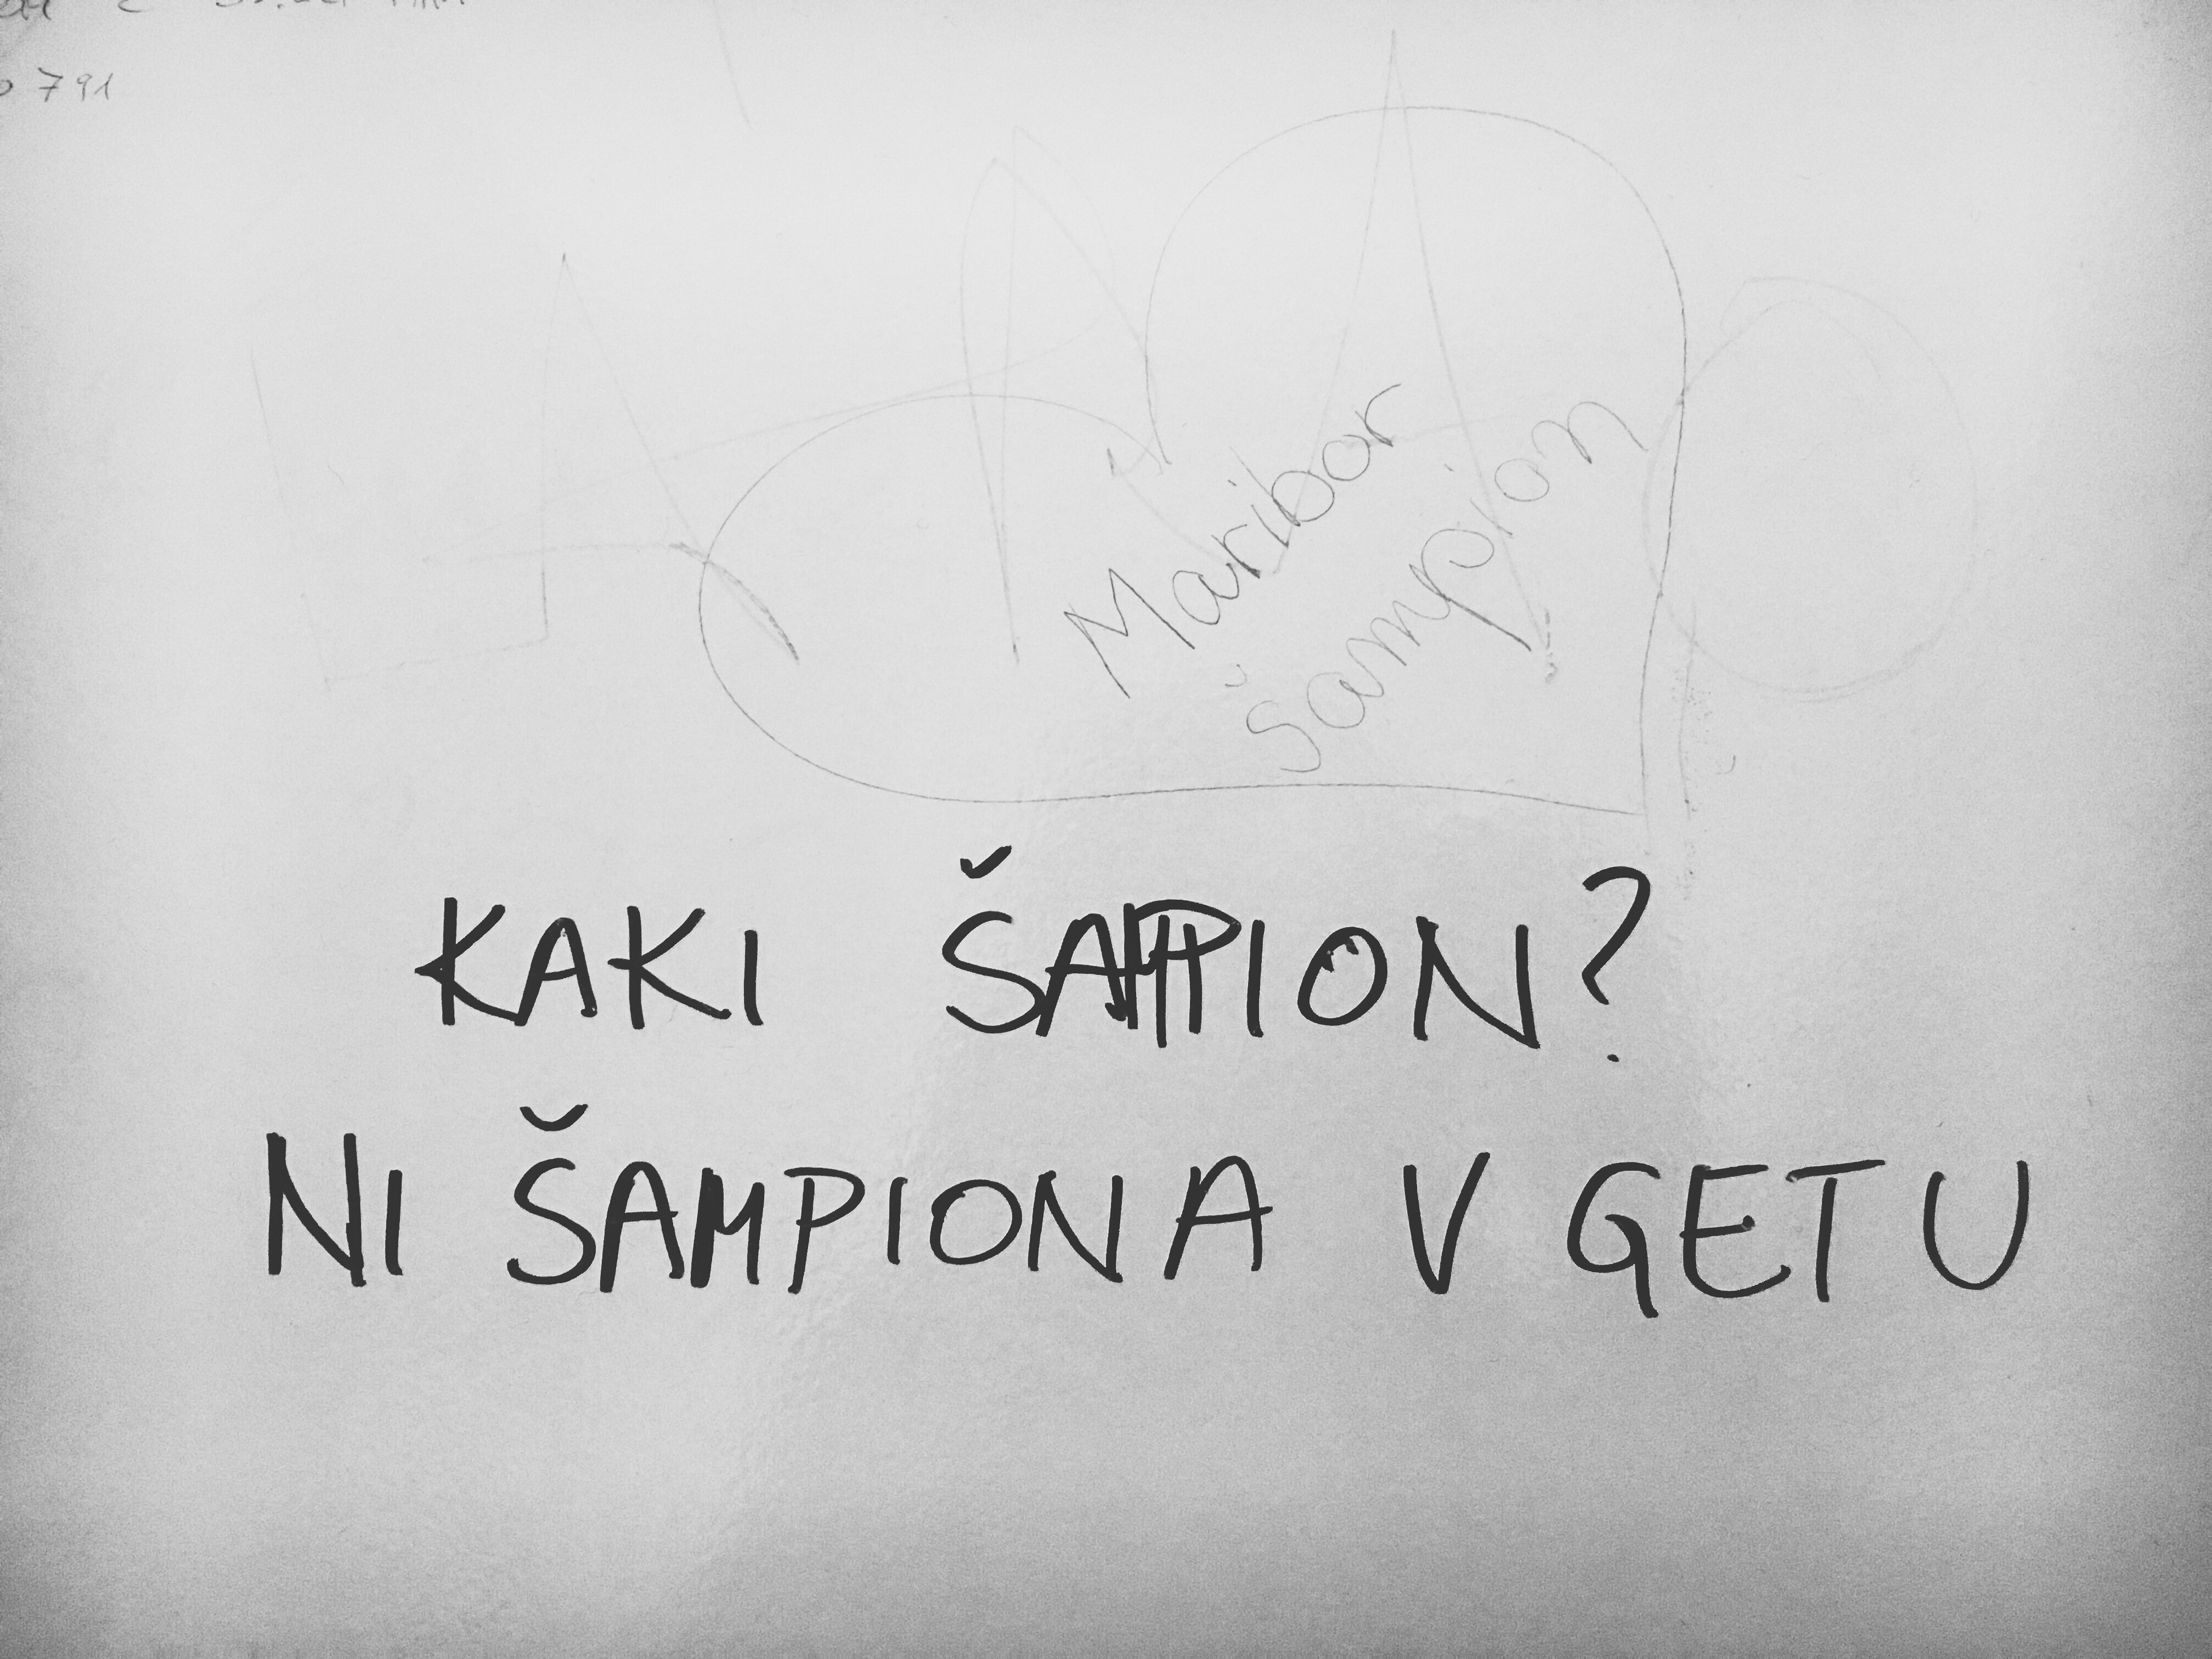 791
Maribor
šampion
KAKI ŠAMPION?
NI ŠAMPIONA V GETU